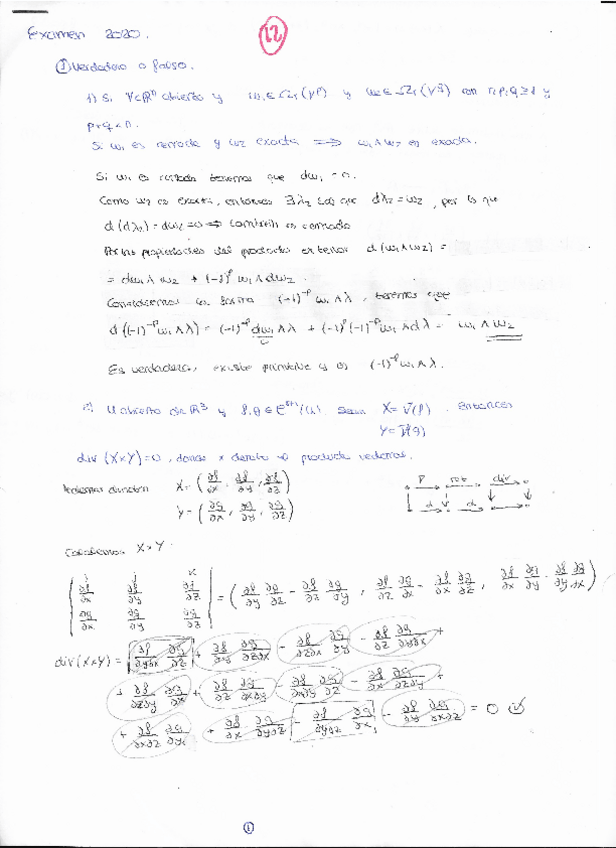 Examen 2020.
12
① Verdadero o falso.
1) Si V⊂ℝⁿ abierto y w₁∈Ωᵣ(Vᵖ) y w₂∈Ωᵣ(V^q) con r,p,q≥1 y
p+q<n.
Si w₁ es cerrada y w₂ exacta ⟹ w₁∧w₂ es exacta.
Si w₁ es cerrada tenemos que dw₁ = 0.
Como w₂ es exacta, entonces ∃λ₂ tal que dλ₂ = w₂, por lo que
d(dλ₂) = dw₂ = 0 ⟹ también es cerrada
Por las propiedades del producto exterior d(w₁∧w₂) =
= dw₁∧w₂ + (-1)ᵖ w₁∧dw₂.
Consideremos la forma (-1)⁻ᵖ w₁∧λ, tenemos que
d((-1)⁻ᵖ w₁∧λ) = (-1)⁻ᵖ dw₁∧λ + (-1)ᵖ(-1)⁻ᵖ w₁∧dλ = w₁∧w₂
Es verdadera, existe primitiva y es (-1)⁻ᵖ w₁∧λ.
U abierto de ℝ³ y f,g ∈ (U). Sean X = ∇(f). Entonces
Y = ∇(g)
div(X×Y)=0, donde × denota el producto vectorial.
X = (∂f/∂x, ∂f/∂y, ∂f/∂z)
∇ rot div
Y = (∂g/∂x, ∂g/∂y, ∂g/∂z)
d d
Calculemos X×Y.
| i j k ; ∂f/∂x ∂f/∂y ∂f/∂z ; ∂g/∂x ∂g/∂y ∂g/∂z | = (∂f/∂y ∂g/∂z − ∂f/∂z ∂g/∂y, ∂f/∂z ∂g/∂x − ∂f/∂x ∂g/∂z, ∂f/∂x ∂g/∂y − ∂f/∂y ∂g/∂x)
div(X×Y) = ∂f/∂y∂x ∂g/∂z + ∂f/∂y ∂g/∂z∂x − ∂f/∂z∂x ∂g/∂y − ∂f/∂z ∂g/∂y∂x +
+ ∂f/∂z∂y ∂g/∂x + ∂f/∂z ∂g/∂x∂y − ∂f/∂x∂y ∂g/∂z − ∂f/∂x ∂g/∂z∂y +
+ ∂f/∂x∂z ∂g/∂y + ∂f/∂x ∂g/∂y∂z − ∂f/∂y∂z ∂g/∂x − ∂f/∂y ∂g/∂x∂z = 0
①